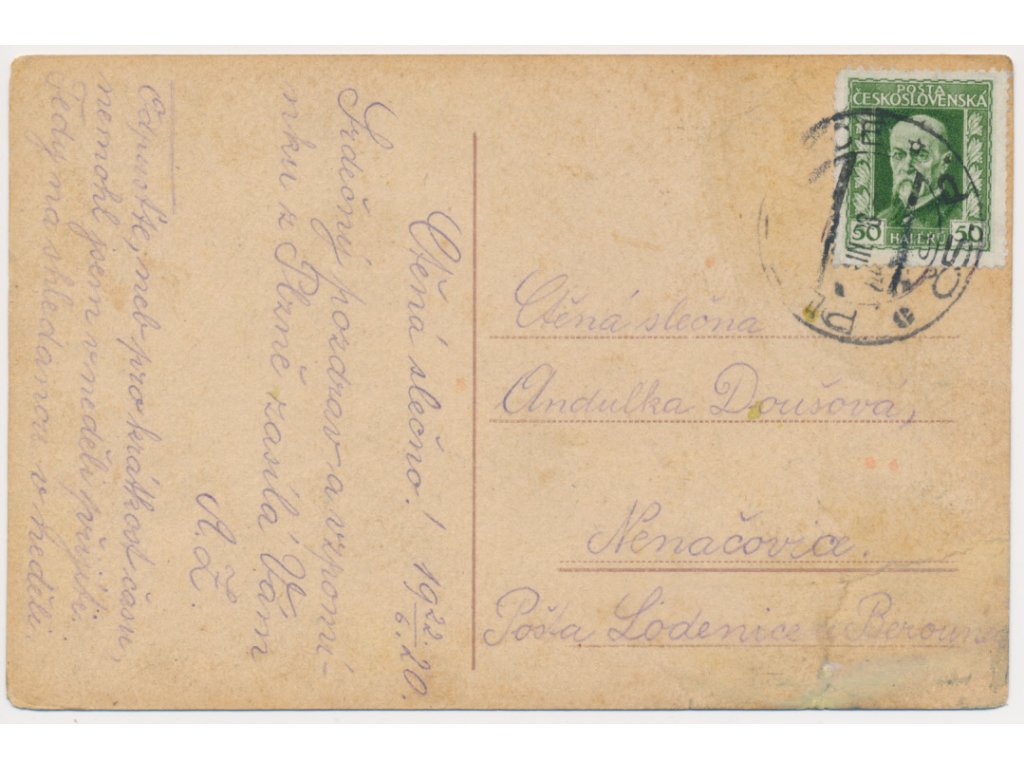 Ctěná slečno! 19 22/6. 20.
Srdečný pozdrav a vzpomí-
nku z Plzně zasílá Vám
A. Z.
Odpusťte, neb pro krátkost času,
nemohl jsem v neděli přijíti.
Tedy na shledanou v neděli.
POŠTA
ČESKOSLOVENSKA
50 HALÉŘŮ 50
Ctěná slečna
Andulka Doušová,
Nenačovice.
Pošta Loděnice u Berouna